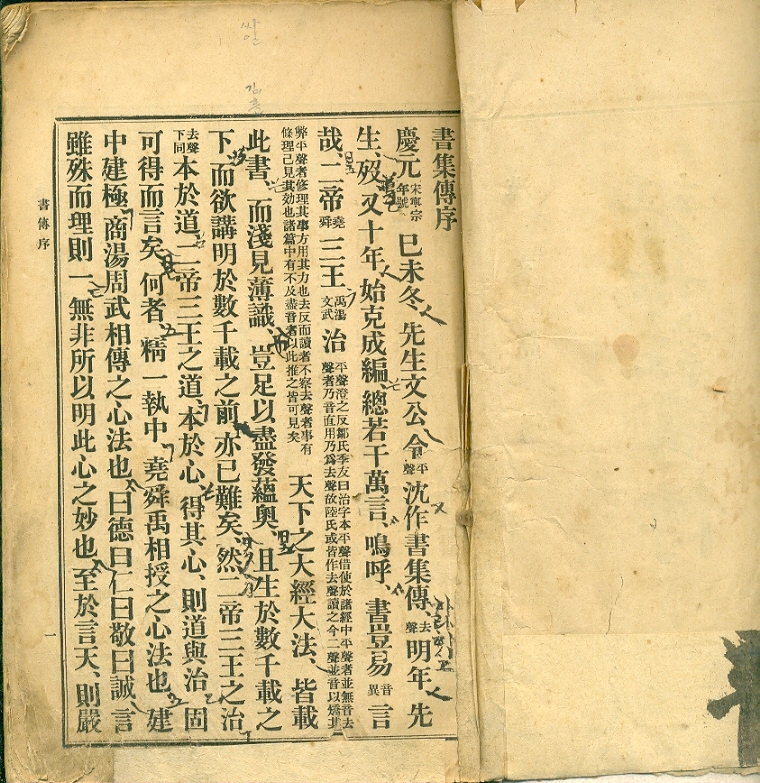 書集傳序
慶元宋寧宗年號己未冬、先生文公、令平聲沈作書集傳、去聲明年、先
生、歿、又十年、始克成編、總若干萬言、嗚呼、書豈易音異言
哉、二帝堯舜三王、禹湯文武治平聲澄之反鄒氏季友曰治字本平聲借使於諸經中平聲者並無音去聲者乃音直用乃爲去聲故陸氏或皆作去聲讀之今二聲並音以矯其
弊平聲者修理其事方用其力也去反而讀者不察去聲者事有條理已見其効也諸篇中有不及盡音者以此推之皆可見矣天下之大經大法、皆載
此書、而淺見薄識、豈足以盡發蘊奧、且生於數千載之
下、而欲講明於數千載之前、亦已難矣、然二帝三王之治
去聲下同本於道、二帝三王之道、本於心、得其心、則道與治、固
可得而言矣、何者、精一執中、堯舜禹相授之心法也、建
中建極、商湯周武相傳之心法也、曰德曰仁曰敬曰誠、言
雖殊而理則一、無非所以明此心之妙也、至於言天、則嚴
書傳序
一